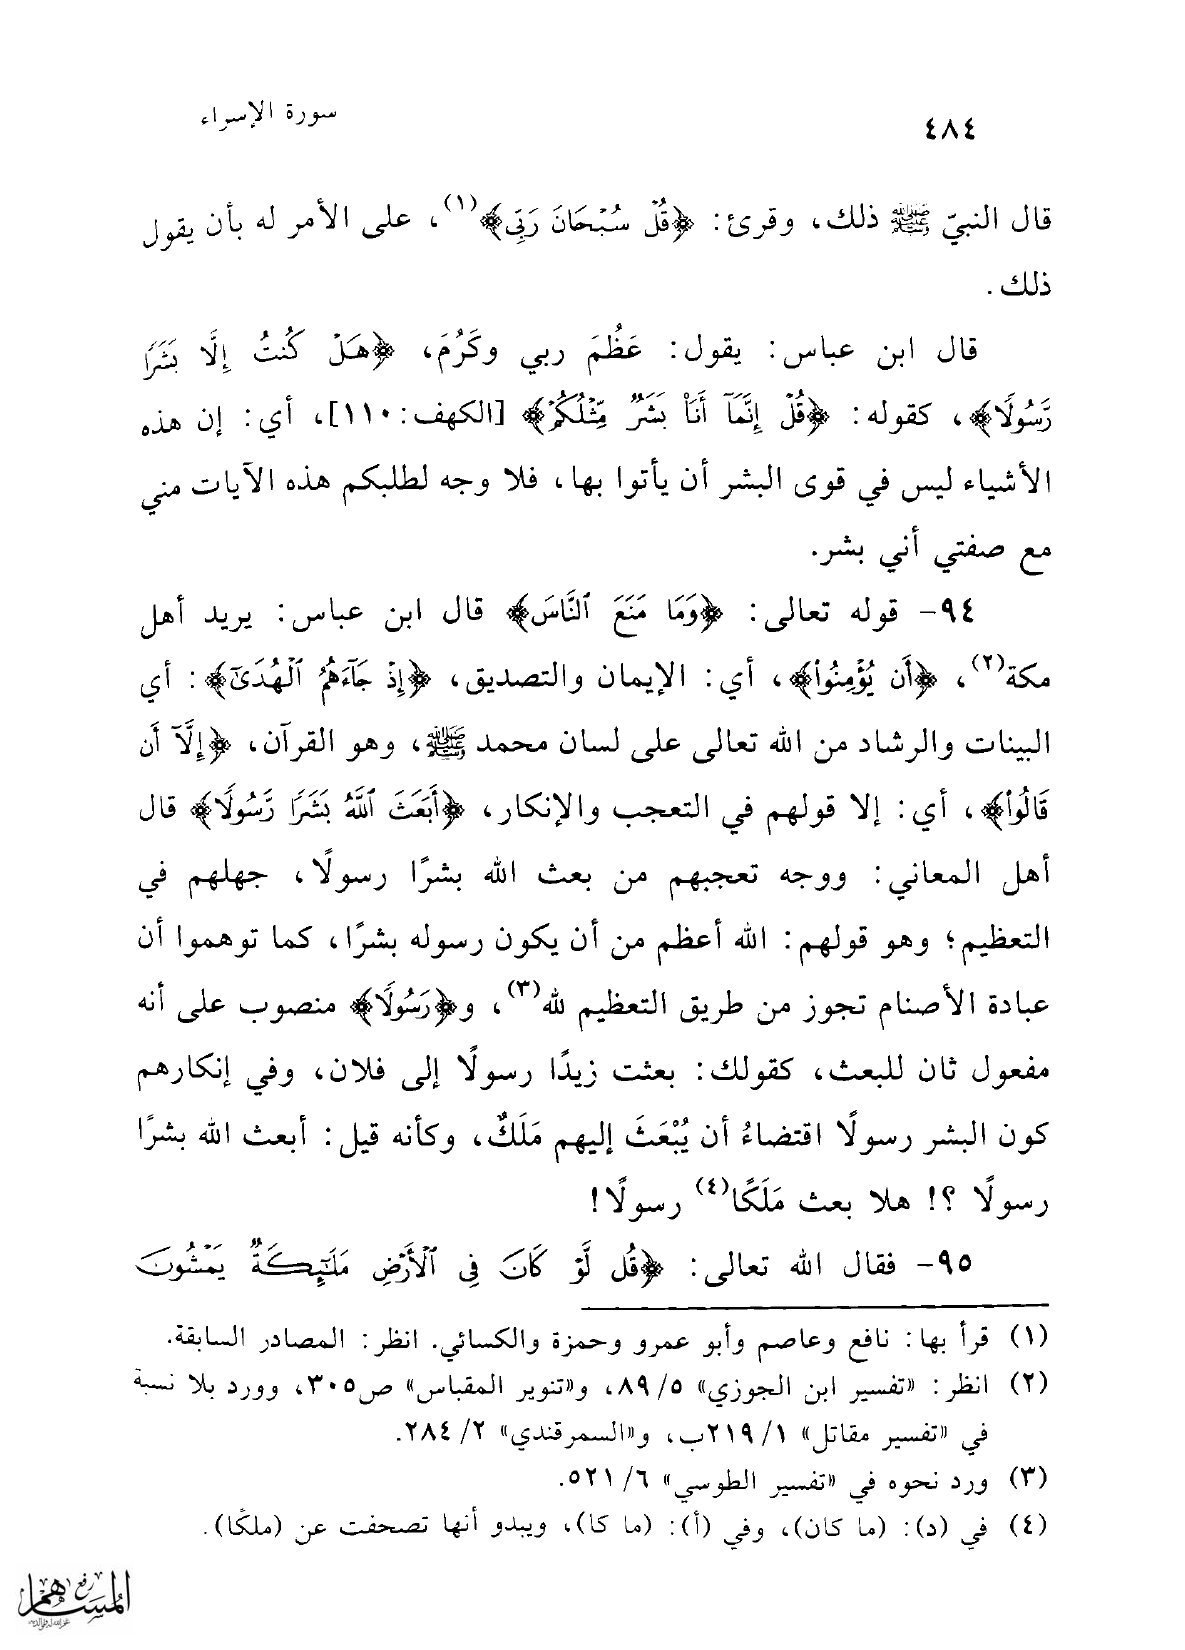 سورة الإسراء
٤٨٤
قال النبيّ ﷺ ذلك، وقرئ: ﴿قُلْ سُبْحَانَ رَبِّي﴾(١)، على الأمر له بأن يقول
ذلك.
قال ابن عباس: يقول: عَظُمَ ربي وكَرُمَ، ﴿هَلْ كُنتُ إِلَّا بَشَرًا
رَّسُولًا﴾، كقوله: ﴿قُلْ إِنَّمَآ أَنَا۠ بَشَرٌ مِّثْلُكُمْ﴾ [الكهف: ١١٠]، أي: إن هذه
الأشياء ليس في قوى البشر أن يأتوا بها، فلا وجه لطلبكم هذه الآيات مني
مع صفتي أني بشر.
٩٤- قوله تعالى: ﴿وَمَا مَنَعَ ٱلنَّاسَ﴾ قال ابن عباس: يريد أهل
مكة(٢)، ﴿أَن يُؤْمِنُوٓا۟﴾، أي: الإيمان والتصديق، ﴿إِذْ جَآءَهُمُ ٱلْهُدَىٰٓ﴾: أي
البينات والرشاد من الله تعالى على لسان محمد ﷺ، وهو القرآن، ﴿إِلَّآ أَن
قَالُوٓا۟﴾، أي: إلا قولهم في التعجب والإنكار، ﴿أَبَعَثَ ٱللَّهُ بَشَرًا رَّسُولًا﴾ قال
أهل المعاني: ووجه تعجبهم من بعث الله بشرًا رسولًا، جهلهم في
التعظيم؛ وهو قولهم: الله أعظم من أن يكون رسوله بشرًا، كما توهموا أن
عبادة الأصنام تجوز من طريق التعظيم لله(٣)، و﴿رَسُولًا﴾ منصوب على أنه
مفعول ثان للبعث، كقولك: بعثت زيدًا رسولًا إلى فلان، وفي إنكارهم
كون البشر رسولًا اقتضاءُ أن يُبْعَثَ إليهم مَلَكٌ، وكأنه قيل: أبعث الله بشرًا
رسولًا ؟! هلا بعث مَلَكًا(٤) رسولًا!
٩٥- فقال الله تعالى: ﴿قُل لَّوْ كَانَ فِى ٱلْأَرْضِ مَلَـٰٓئِكَةٌ يَمْشُونَ
(١) قرأ بها: نافع وعاصم وأبو عمرو وحمزة والكسائي. انظر: المصادر السابقة.
(٢) انظر: «تفسير ابن الجوزي» ٥/ ٨٩، و«تنوير المقباس» ص٣٠٥، وورد بلا نسبة
في «تفسير مقاتل» ١/ ٢١٩ب، و«السمرقندي» ٢/ ٢٨٤.
(٣) ورد نحوه في «تفسير الطوسي» ٦/ ٥٢١.
(٤) في (د): (ما كان)، وفي (أ): (ما كا)، ويبدو أنها تصحفت عن (ملكًا).